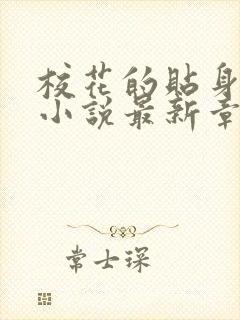 校花的貼身
小說最新章
常士琛